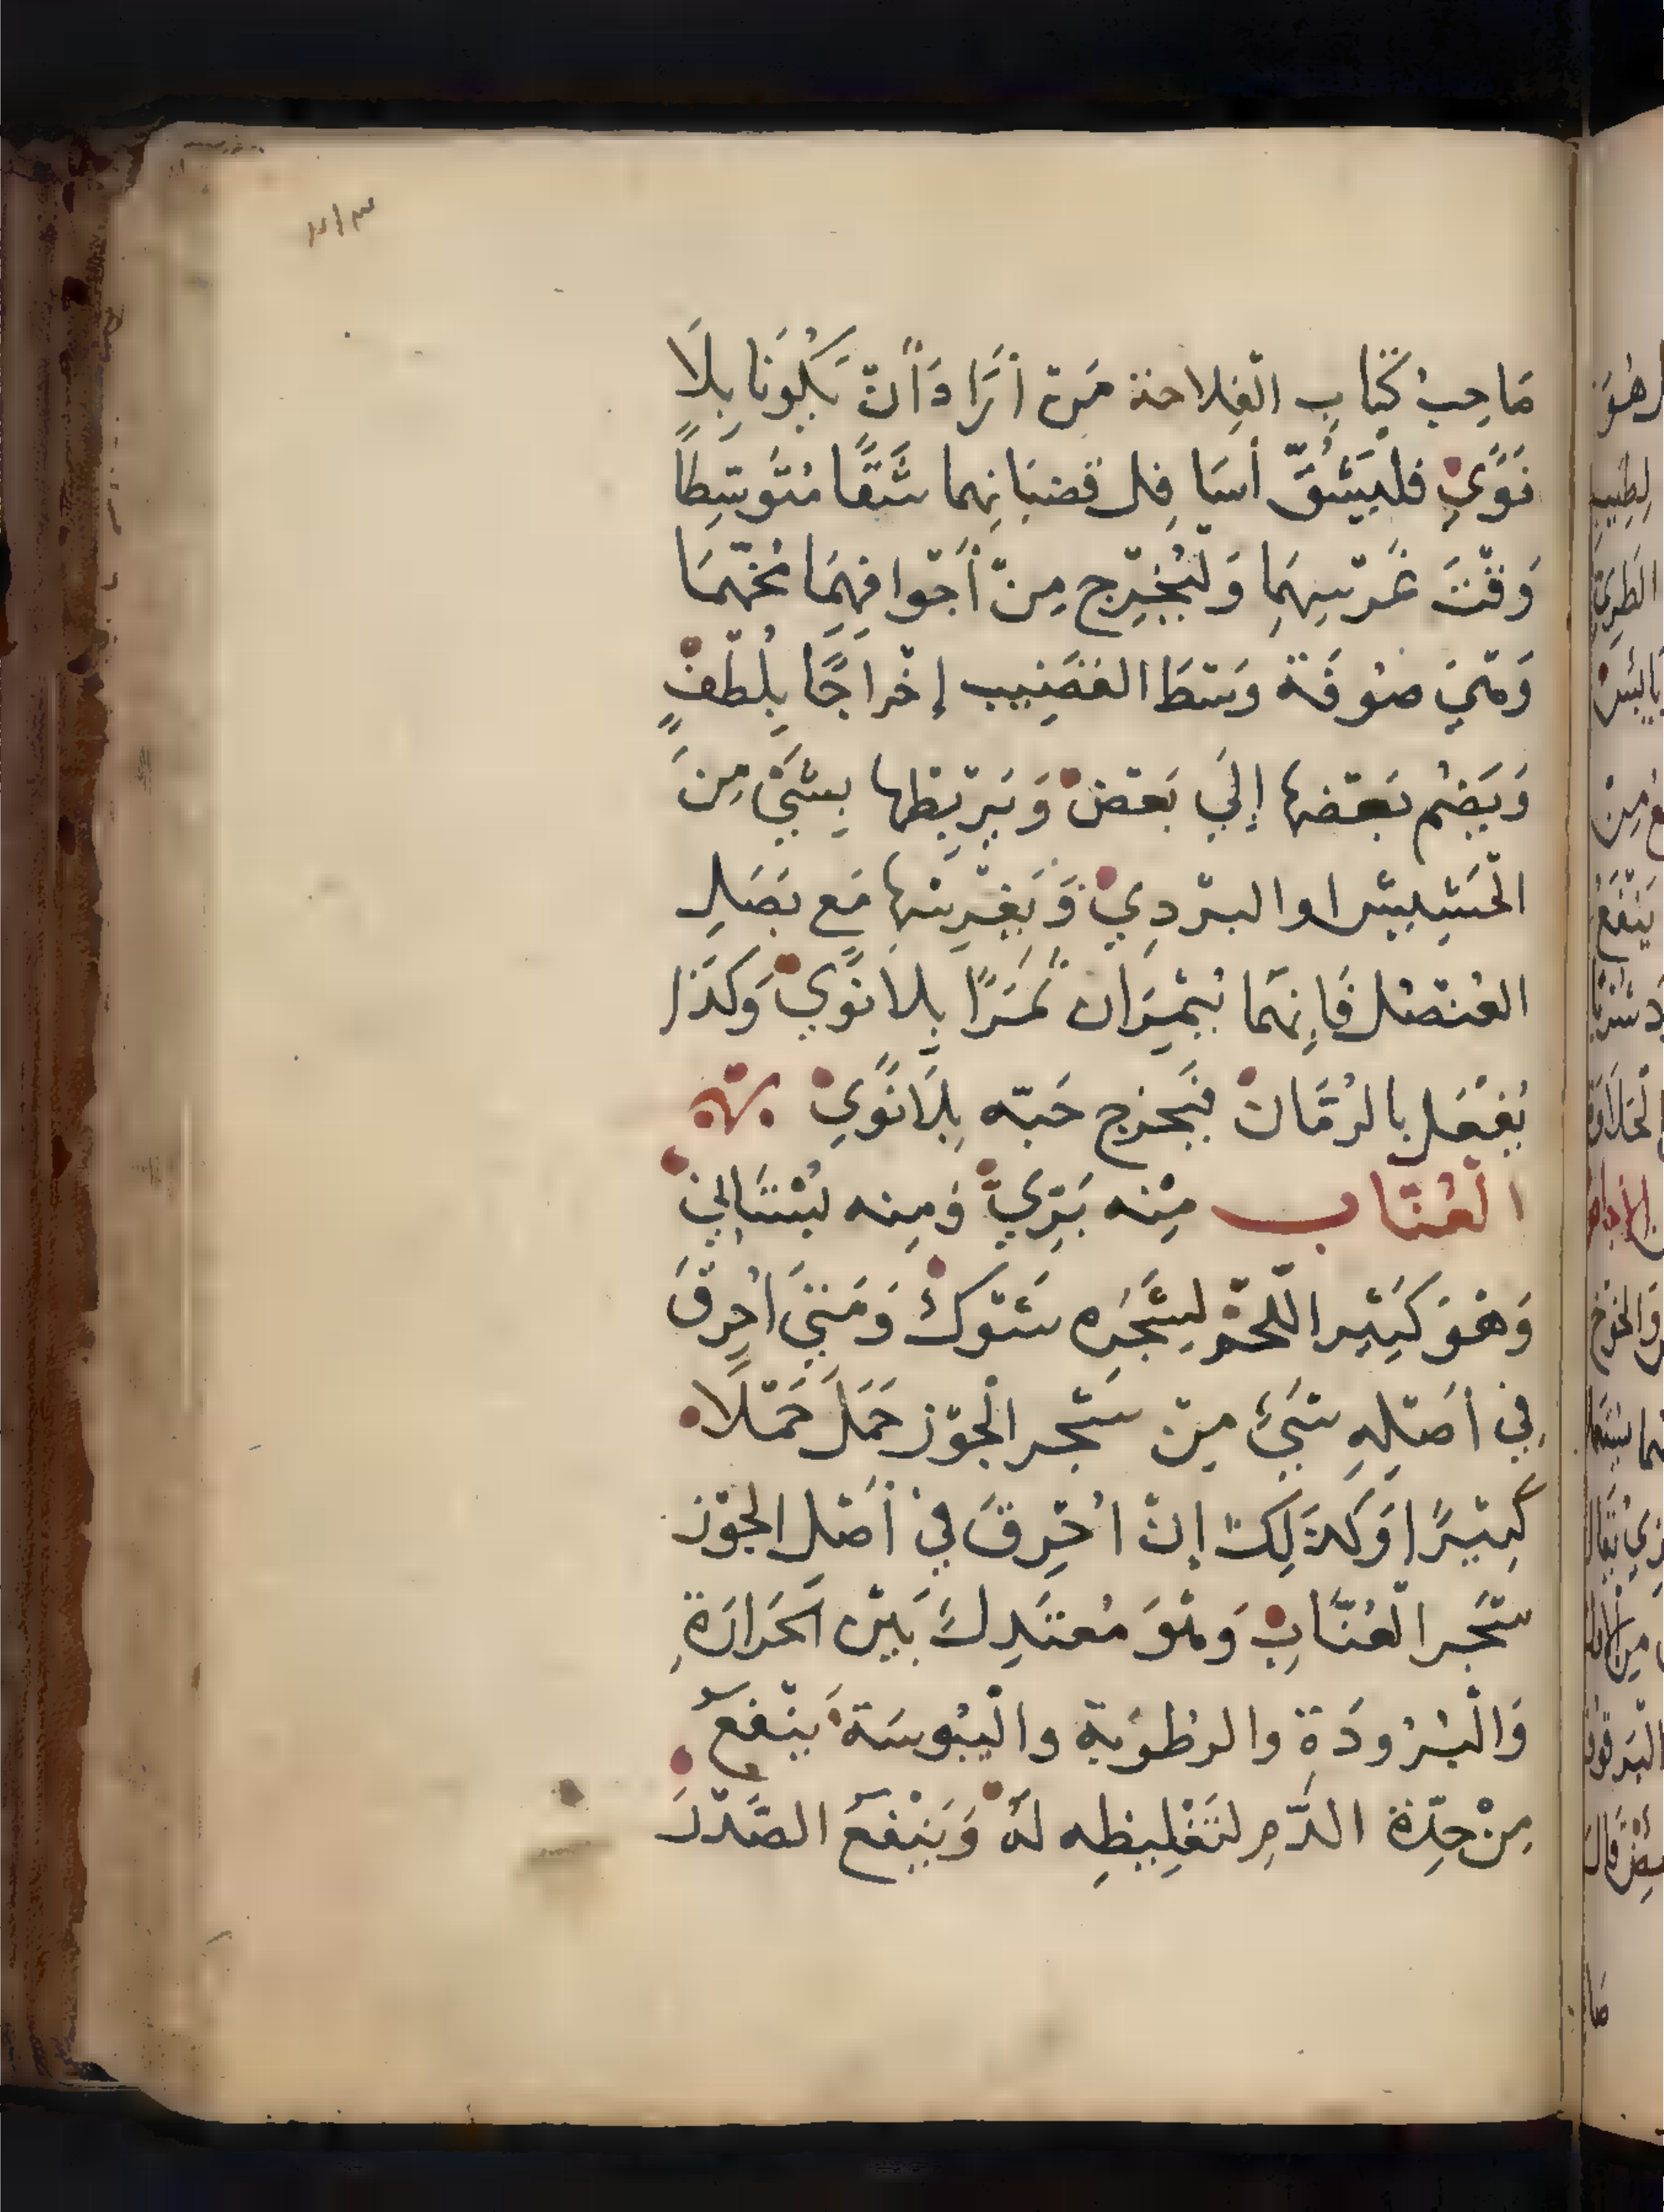 ٣١٣
صَاحِبُ كتَاب الْفِلاحة مَن أَرَادَ أَنْ يَكُونَا بِلَا
نَوًي فليَشُقَّ أسَافِل قضبَانِهما شَقًّا مُتَوسِّطًا
وَقْتَ غَرْسِهِمَا وَلْيُخْرِج مِنْ أَجْوافِهِمَا مُخّهمَا
وَهْيَ صُوفَة وَسْطَ القَضِيب إخْراجًا بِلُطْفٍ
وَيَضُم بَعْضها إلَي بَعْض وَيَرْبِطها بِشَيْ مِنَ
الْحَشِيش او البرْدِي وَيَغْرِسُها مَع بَصَلِ
العُنْصُل فَإِنهمَا يُثْمِرَان ثَمَرًا بِلا نَوًي وَكَذَا
يُفْعَل بالرُمَّان فيَخرج حَبّه بِلَا نَوًي
الْعُنّاب مِنْه بَرِّيّ وَمِنه بُسْتَانِي
وَهُوَ كَثِير اللّحْم لِشَجَرِه شَوْك وَمَتَيَ احْرِقَ
فِي أصْلِهِ شَيْء مِنْ شَجر الْجَوْز حَمَلَ حَمْلًا
كَثِيْرًا وَكذَلِكَ إنْ اُحْرِقَ فِي أصْلِ الجَوْز
شَجر الْعُنَّابِ وَهْوَ مُعتَدِل بَيْن الحَرَارَةِ
وَالْبُرُودَة والرطُوبَة والْيبُوسَة يَنْفَع
مِنْ حِدّة الدَّمِ لتَغْلِيظِه لَهُ وَيَنْفَع الصَّدْرَ